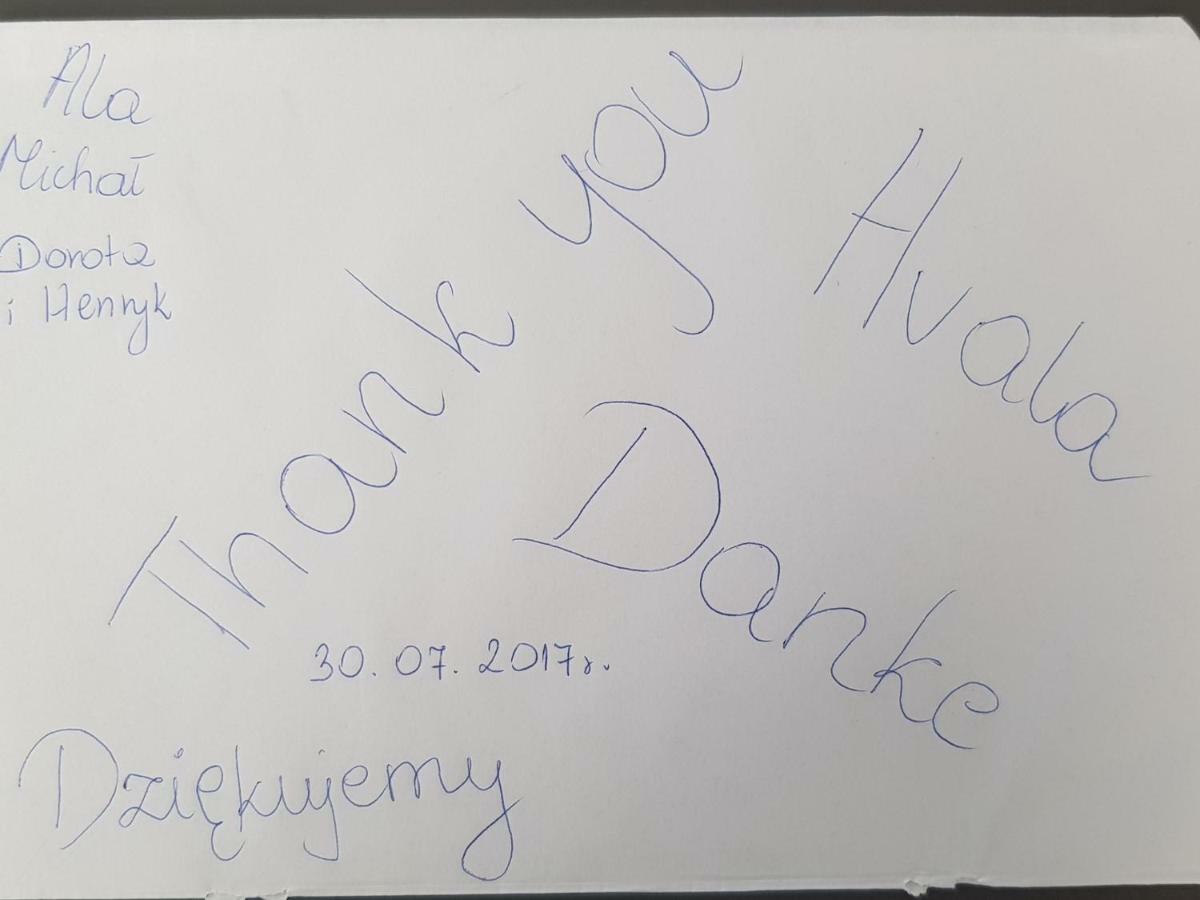 Ala
Michał
Dorota
i Henryk
Thank you
Hvala
Danke
30.07.2017r.
Dziękujemy